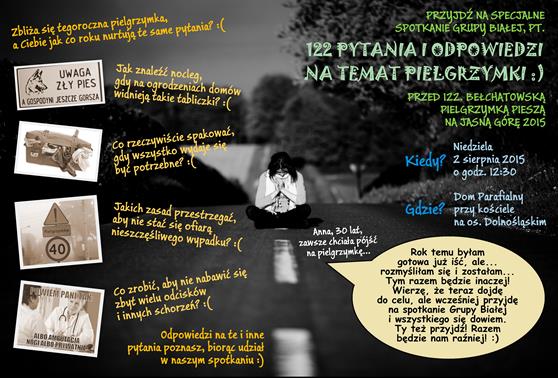 Zbliża się tegoroczna pielgrzymka,
a Ciebie jak co roku nurtują te same pytania? :(
UWAGA
ZŁY PIES
A GOSPODYNI JESZCZE GORSZA
Jak znaleźć nocleg,
gdy na ogrodzeniach domów
widnieją takie tabliczki? :(
Co rzeczywiście spakować,
gdy wszystko wydaje się
być potrzebne? :(
40
Jakich zasad przestrzegać,
aby nie stać się ofiarą
nieszczęśliwego wypadku? :(
POWIEM PANI TAK
ALBO AMPUTACJA
NOGI ALBO PRYWATNIE
Co zrobić, aby nie nabawić się
zbyt wielu odcisków
i innych schorzeń? :(
Odpowiedzi na te i inne
pytania poznasz, biorąc udział
w naszym spotkaniu :)
PRZYJDŹ NA SPECJALNE
SPOTKANIE GRUPY BIAŁEJ, PT.
122 PYTANIA I ODPOWIEDZI
NA TEMAT PIELGRZYMKI :)
PRZED 122. BEŁCHATOWSKĄ
PIELGRZYMKĄ PIESZĄ
NA JASNĄ GÓRĘ 2015
Kiedy?
Niedziela
2 sierpnia 2015
o godz. 12:30
Gdzie?
Dom Parafialny
przy kościele
na os. Dolnośląskim
Anna, 30 lat,
zawsze chciała pójść
na pielgrzymkę...
Rok temu byłam
gotowa już iść, ale...
rozmyśliłam się i zostałam...
Tym razem będzie inaczej!
Wierzę, że teraz dojdę
do celu, ale wcześniej przyjdę
na spotkanie Grupy Białej
i wszystkiego się dowiem.
Ty też przyjdź! Razem
będzie nam raźniej! :)